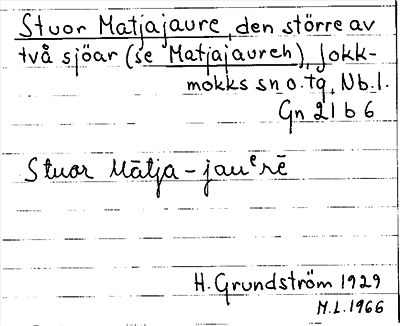 Stuor Matjajaure, den större av
två sjöar (se Matjajaureh), Jokk-
mokks sn o. tg, Nb.l.
Gn 21 b 6
Stuor Mātja-jauᵉrē
H. Grundström 1929
M.L. 1966